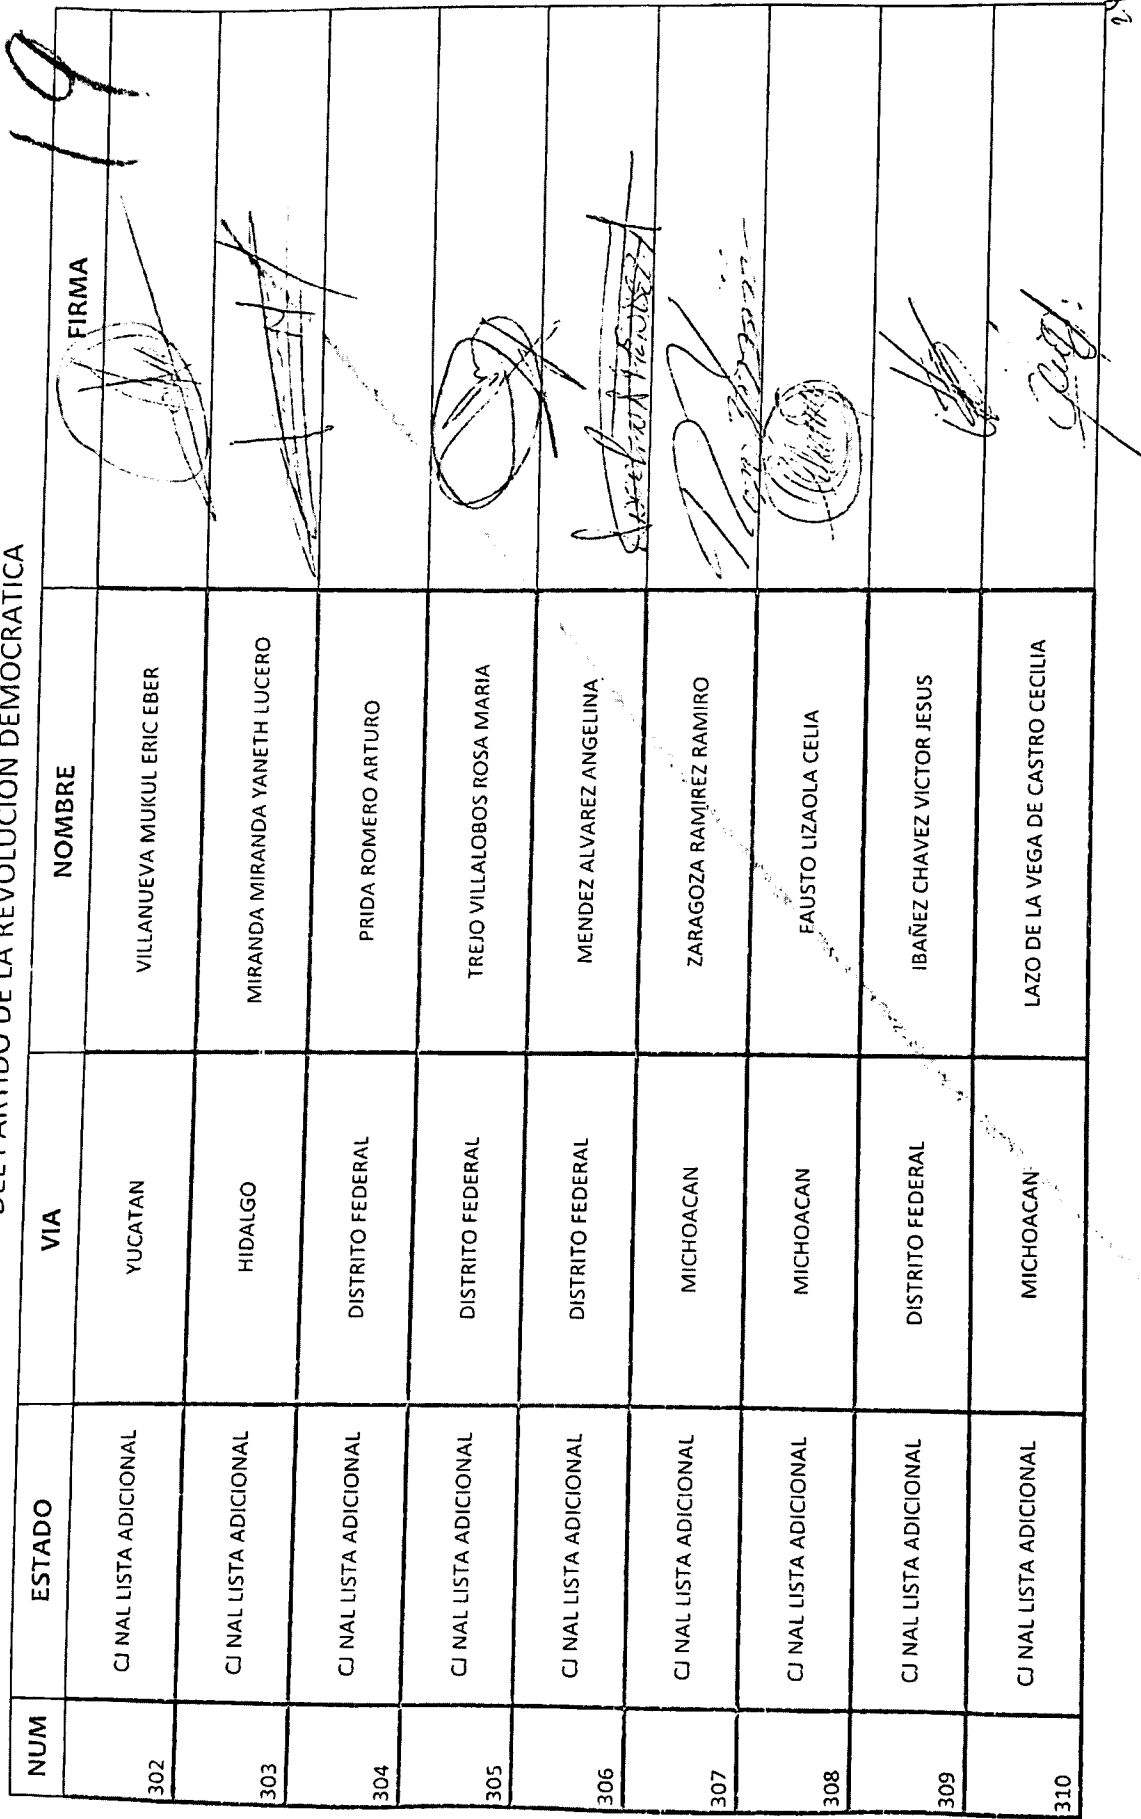 DEL PARTIDO DE LA REVOLUCION DEMOCRATICA
19
NUM ESTADO VIA NOMBRE FIRMA
302 CJ NAL LISTA ADICIONAL YUCATAN VILLANUEVA MUKUL ERIC EBER
303 CJ NAL LISTA ADICIONAL HIDALGO MIRANDA MIRANDA YANETH LUCERO
304 CJ NAL LISTA ADICIONAL DISTRITO FEDERAL PRIDA ROMERO ARTURO
305 CJ NAL LISTA ADICIONAL DISTRITO FEDERAL TREJO VILLALOBOS ROSA MARIA
306 CJ NAL LISTA ADICIONAL DISTRITO FEDERAL MENDEZ ALVAREZ ANGELINA
307 CJ NAL LISTA ADICIONAL MICHOACAN ZARAGOZA RAMIREZ RAMIRO
308 CJ NAL LISTA ADICIONAL MICHOACAN FAUSTO LIZAOLA CELIA
309 CJ NAL LISTA ADICIONAL DISTRITO FEDERAL IBAÑEZ CHAVEZ VICTOR JESUS
310 CJ NAL LISTA ADICIONAL MICHOACAN LAZO DE LA VEGA DE CASTRO CECILIA